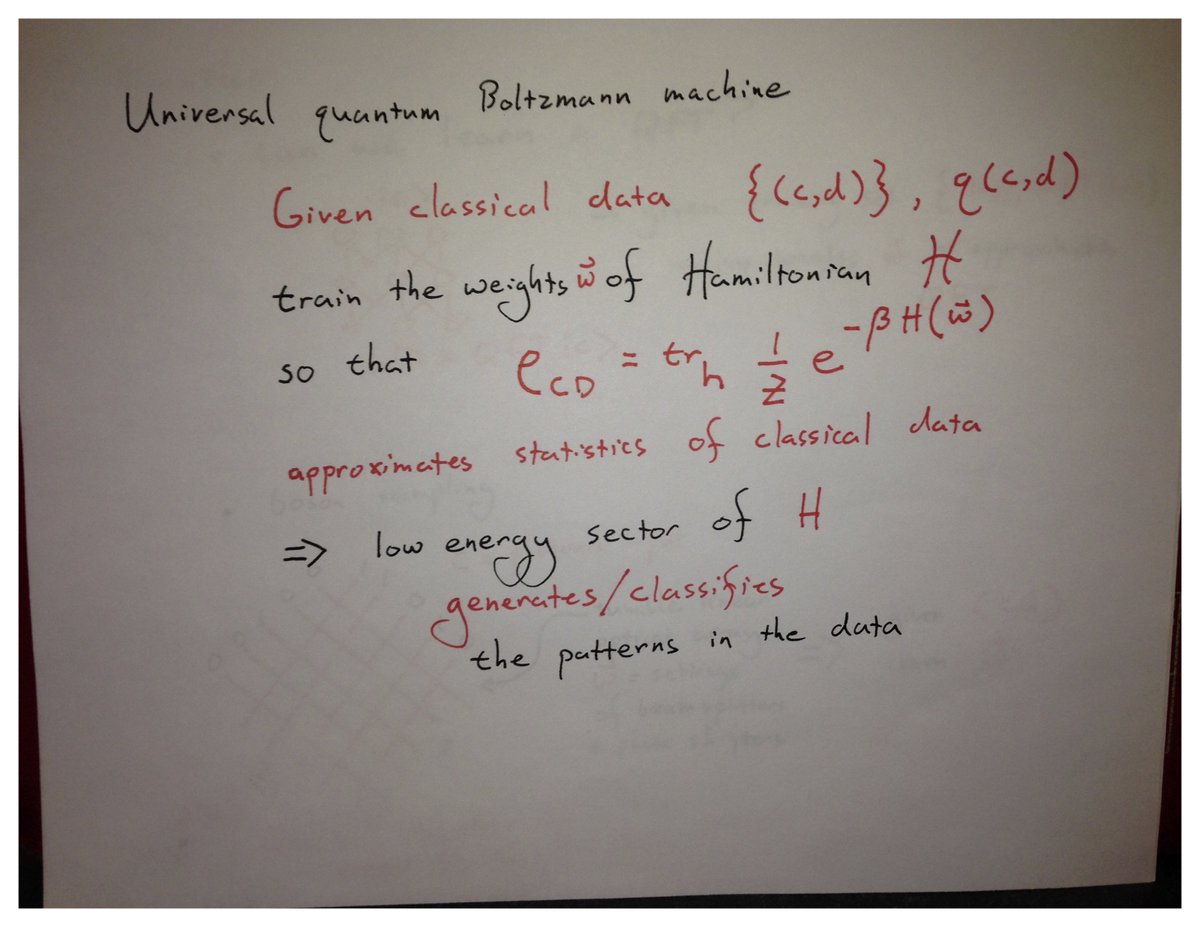 Universal quantum Boltzmann machine
Given classical data {(c,d)}, q(c,d)
train the weights w⃗ of Hamiltonian H
so that ρ_CD = tr_h 1/Z e^{-βH(w⃗)}
approximates statistics of classical data
=> low energy sector of H
generates/classifies
the patterns in the data